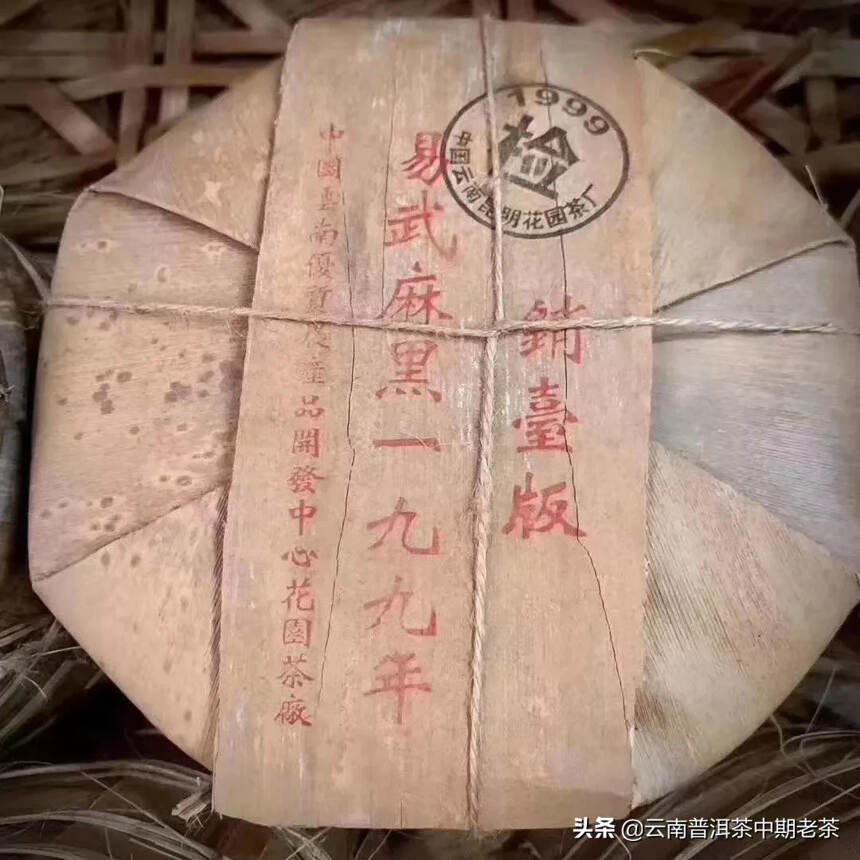 1999
检
中国云南昆明花园茶厂
銷臺版
易武麻黑一九九九年
中國雲南優質農產品開發中心花園茶廠
头条 @云南普洱茶中期老茶